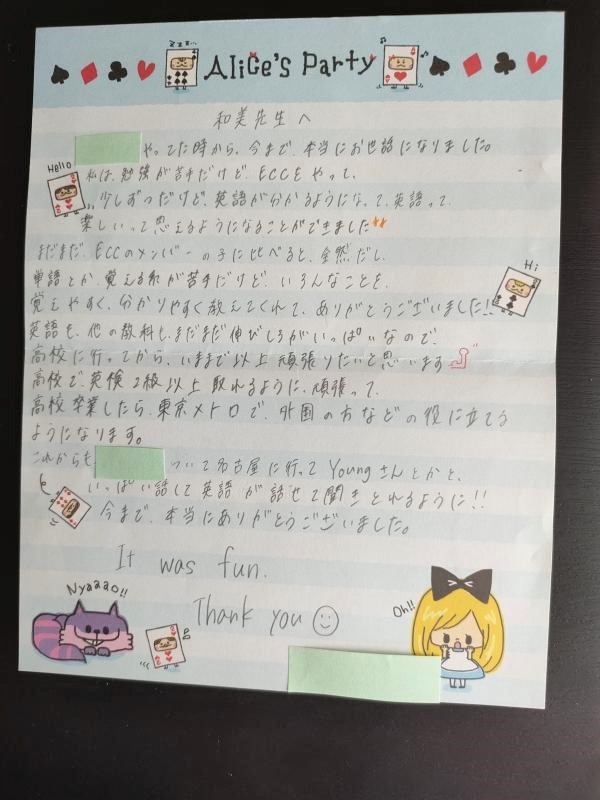 Alice's Party
和美先生へ
やってた時から、今まで、本当にお世話になりました。
Hello
私は、勉強が苦手だけど、ECCをやって、
少しずつだけど、英語が分かるようになって、英語って、
楽しいって思えるようになることができました
まだまだ、ECCのメンバーの子に比べると、全然だし、
Hi
単語とか、覚える系が苦手だけど、いろんなことを、
覚えやすく、分かりやすく教えてくれて、ありがとうございました!!
英語も、他の教科も、まだまだ伸びしろがいっぱいなので、
高校に行ってから、いままで以上頑張りたいと思います
高校で、英検2級以上取れるように、頑張って、
高校卒業したら、東京メトロで、外国の方などの役に立てる
ようになります。
これからも
ついて名古屋に行って Youngさんとかと、
いっぱい話して英語が話せて聞きとれるように!!
今まで、本当にありがとうございました。
It was fun.
Nyaaao!!
Thank you
Oh!!